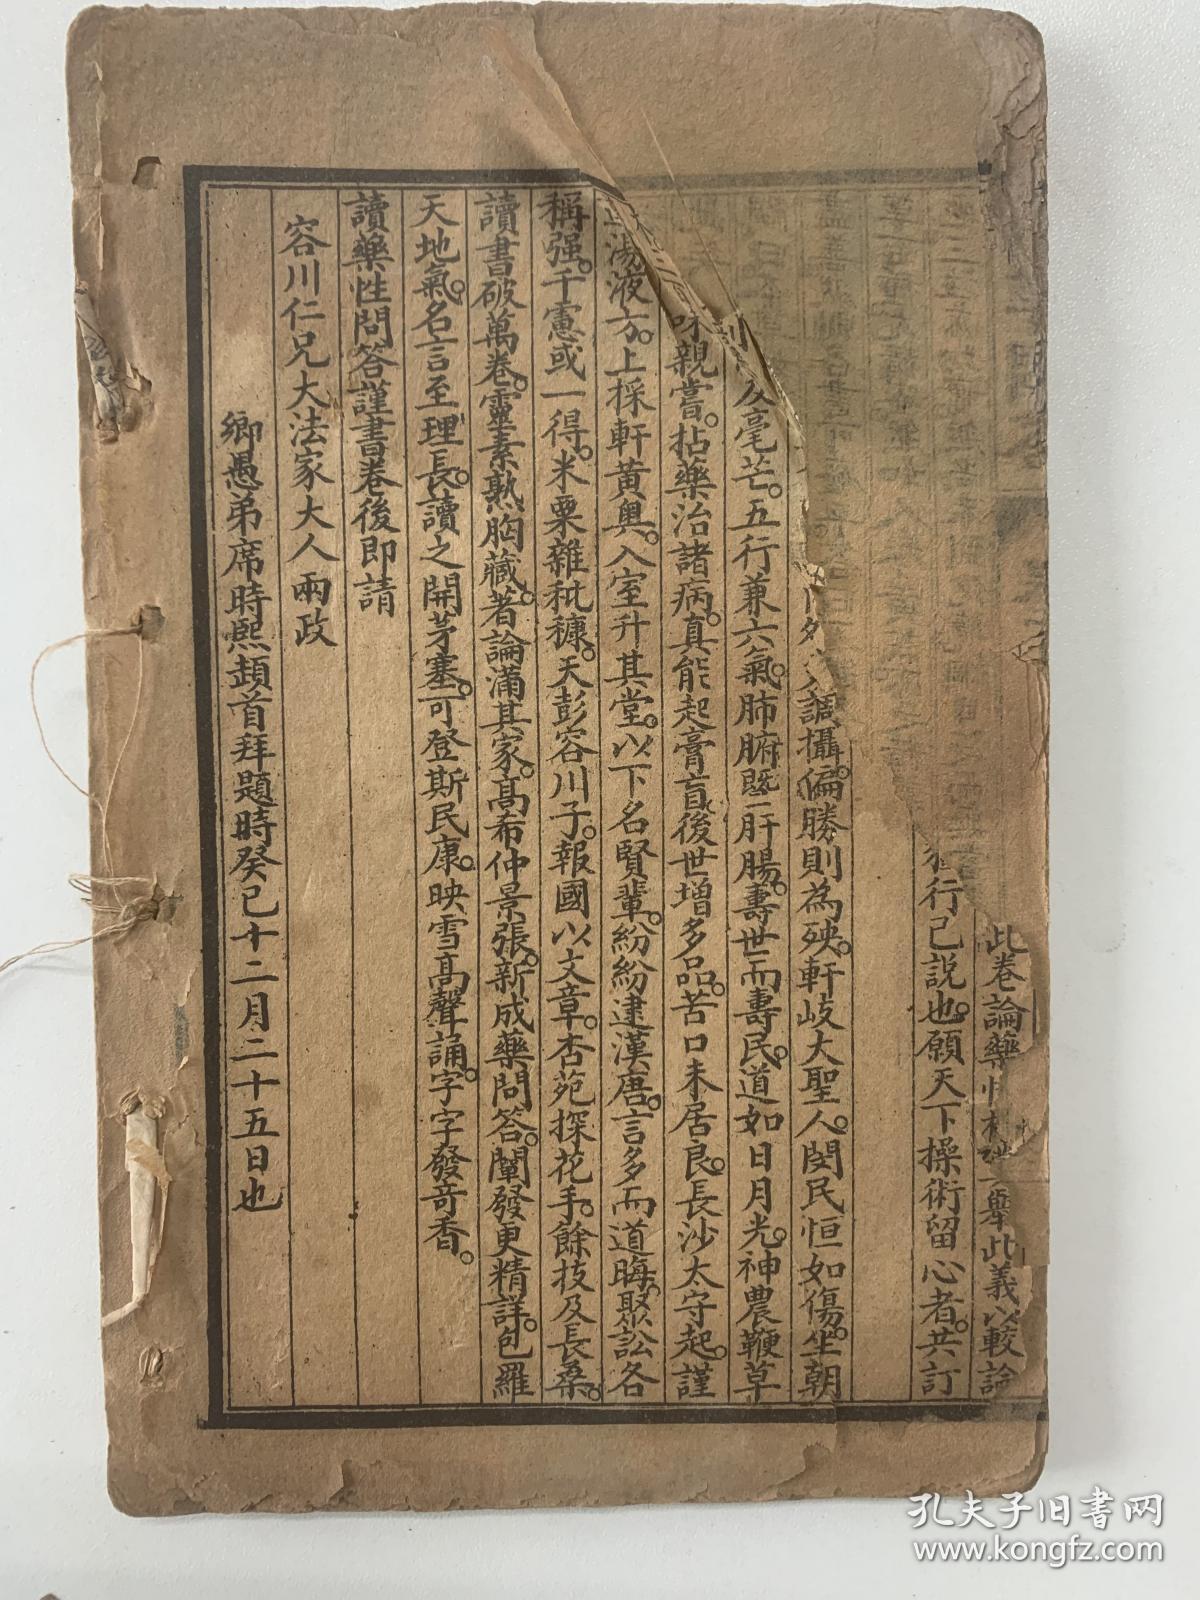 此卷論藥性
舉此義以較論
行已說也。願天下操術留心者。共訂
調攝。偏勝則為殃。軒岐大聖人。閔民恒如傷。坐朝
及毫芒。五行兼六氣。肺腑既肝腸。壽世而壽民。道如日月光。神農鞭草
味親嘗。拈藥治諸病。真能起膏肓。後世增多品。苦口未居良。長沙太守起。謹
湯液方。上採軒黃奧。入室升其堂。以下名賢輩。紛紛逮漢唐。言多而道晦。聚訟各
稱强。千慮或一得。米粟雜秕糠。天彭容川子。報國以文章。杏苑探花手。餘技及長桑。
讀書破萬卷。靈素熟胸藏。著論滿其家。高希仲景張。新成藥問答。闡發更精詳。包羅
天地氣。名言至理長。讀之開茅塞。可登斯民康。映雪高聲誦。字字發奇香。
讀藥性問答謹書卷後即請
容川仁兄大法家大人兩政
鄉愚弟席時熙頓首拜題時癸巳十二月二十五日也
孔夫子旧书网
www.kongfz.com